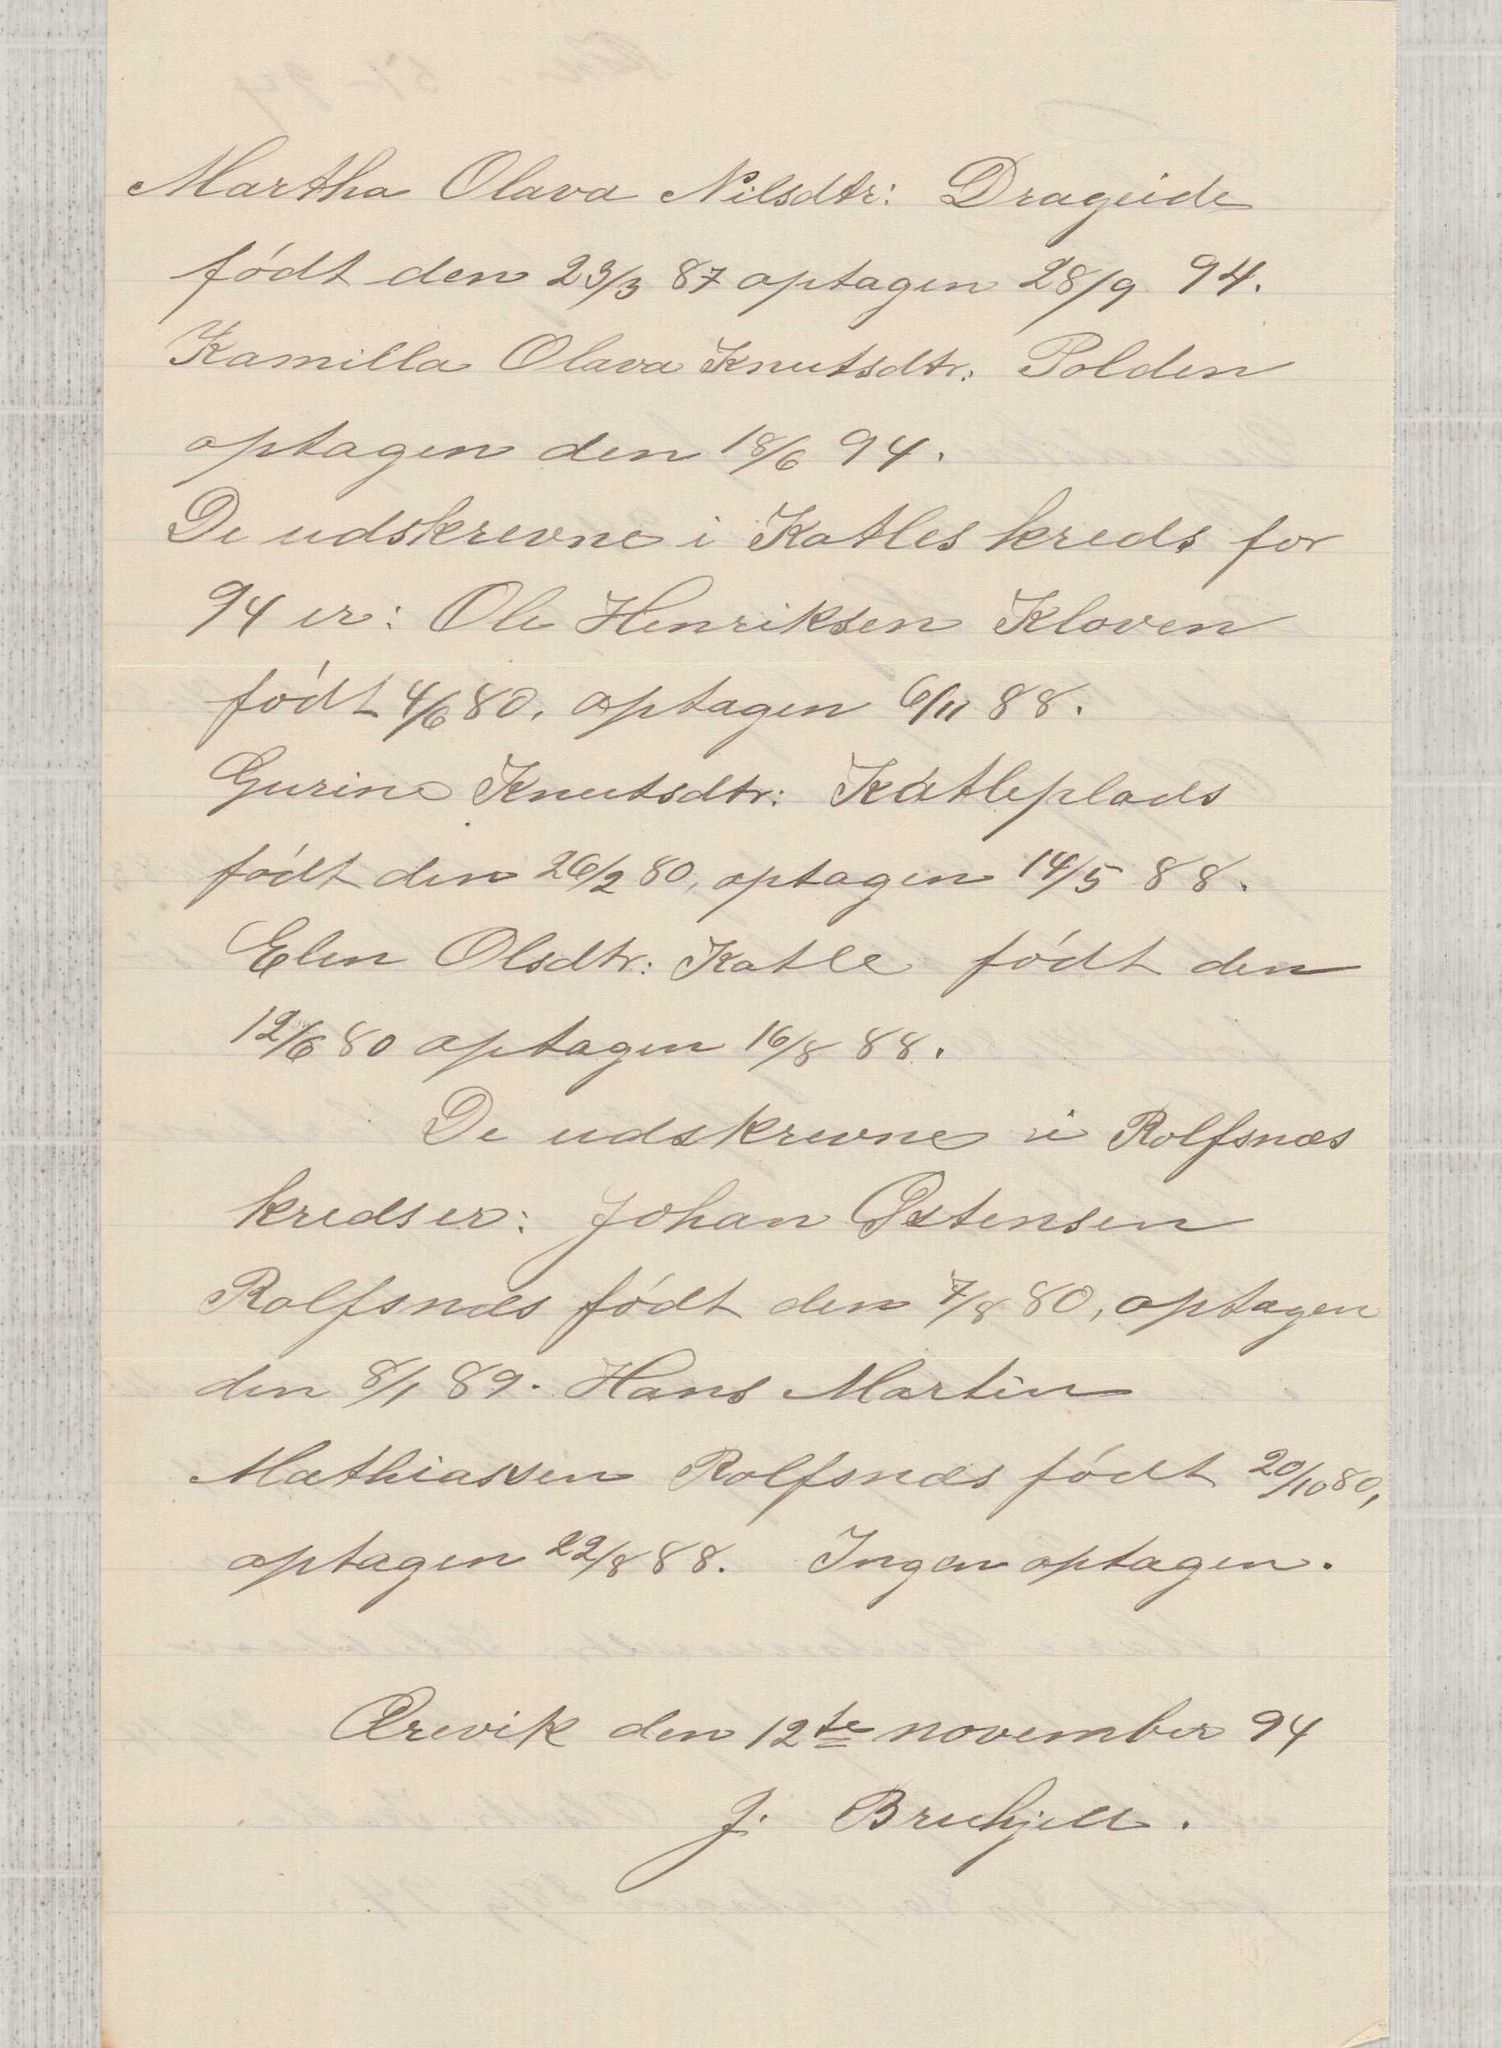 Martha Olava Nilsdtr: Drageide
født den 23/3 87 optagen 28/9 94.
Kamilla Olava Knutsdtr: Polden
optagen den 18/6 94.
De udskrevne i Katles kreds for
94 er: Ole Henriksen Kloven
født 4/6 80, optagen 6/11 88.
Gurine Knutsdtr: Katleplads
født den 26/2 80, optagen 14/5 88.
Elen Olsdtr: Katle født den
12/6 80 optagen 16/8 88.
De udskrevne i Rolfsnæs
kreds er: Johan Østensen
Rolfsnæs født den 7/8 80, optagen
den 8/1 89. Hans Martin
Mathiassen Rolfsnæs født 20/10 80,
optagen 22/8 88. Ingen optagen.
Ærevik den 12te november 94
J.